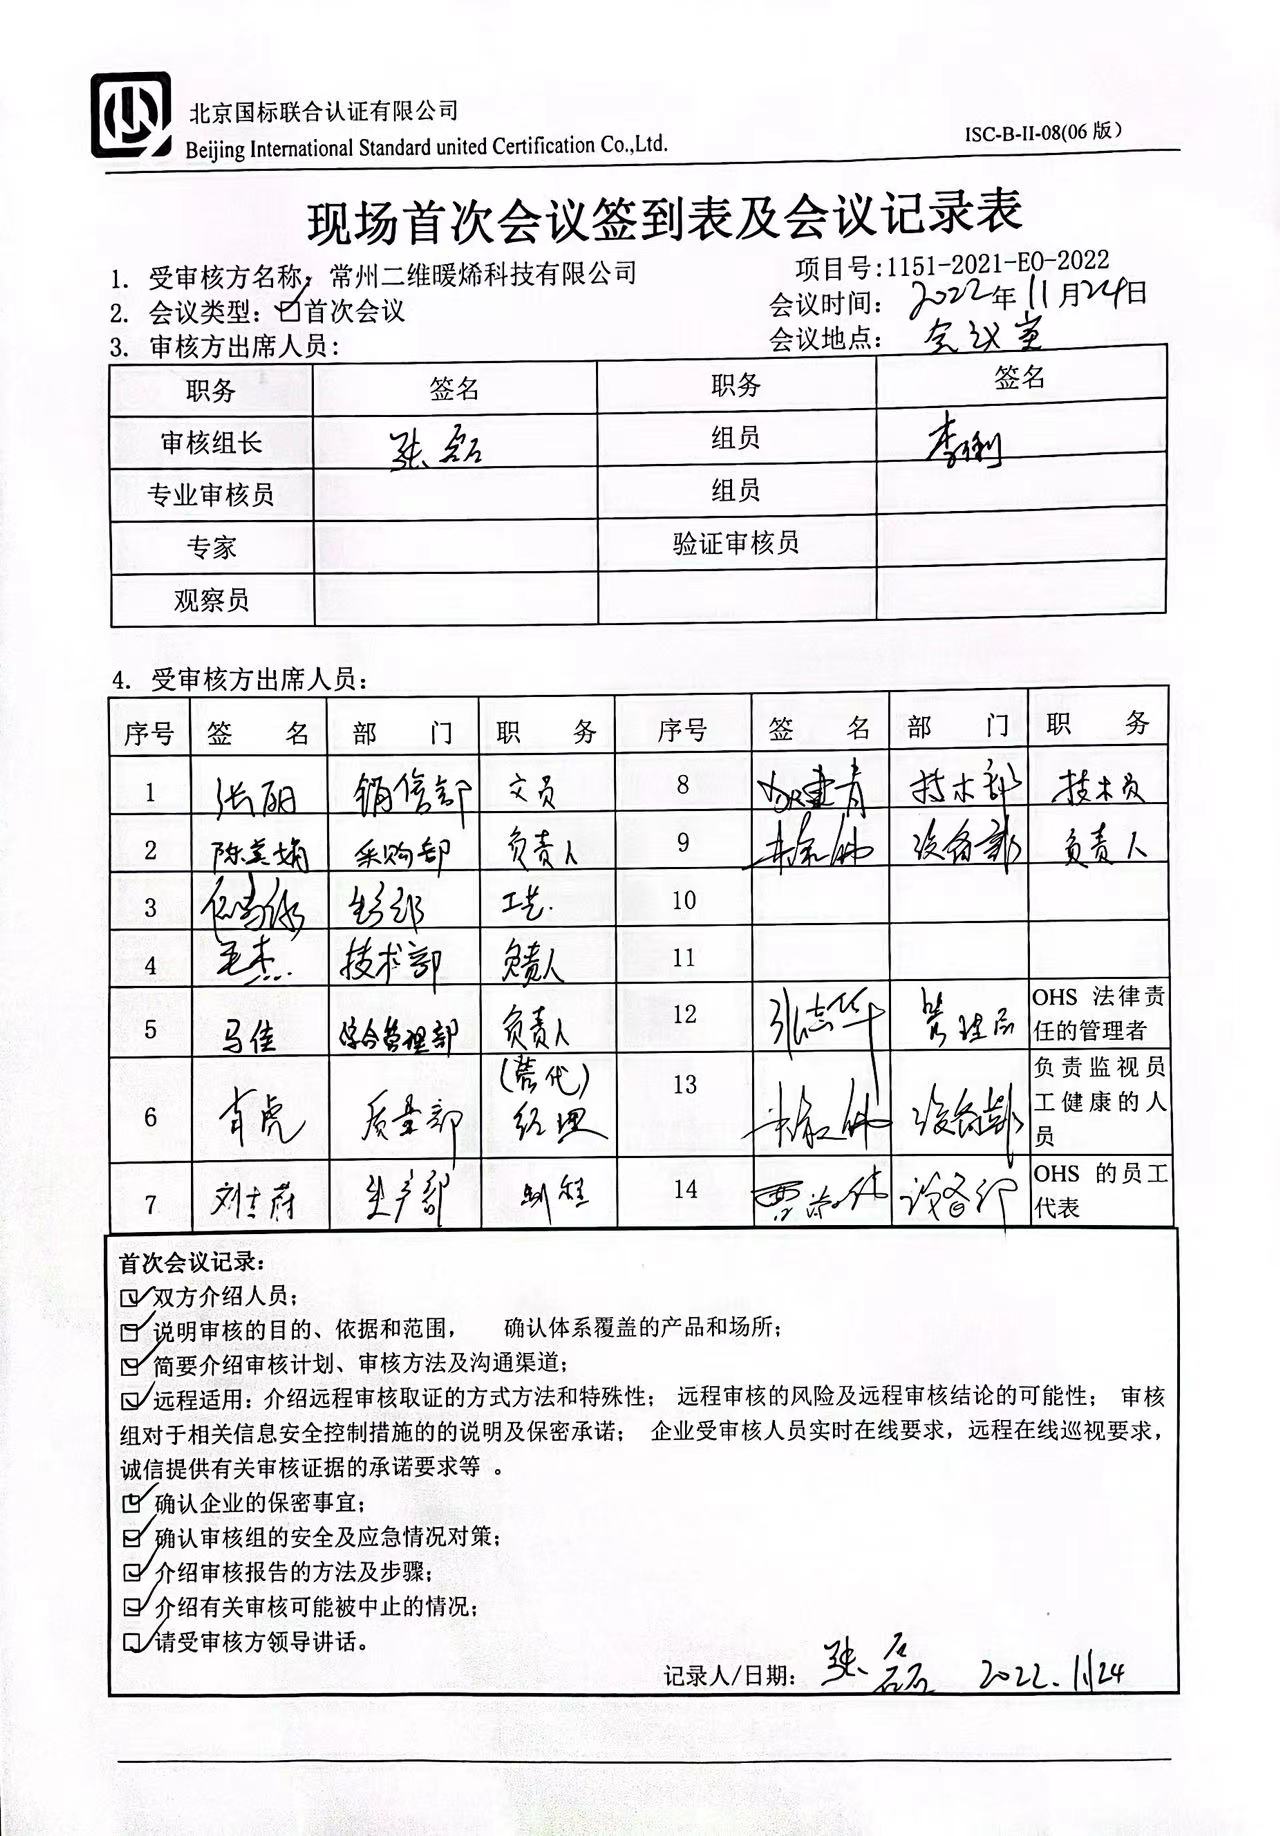 北京国标联合认证有限公司
Beijing International Standard united Certification Co.,Ltd.
ISC-B-II-08(06 版)
现场首次会议签到表及会议记录表
1. 受审核方名称：常州二维暖烯科技有限公司 项目号:1151-2021-EO-2022
2. 会议类型：☑首次会议 会议时间： 2022年11月24日
3. 审核方出席人员: 会议地点： 会议室
职务 签名 职务 签名
审核组长 张磊 组员 李俐
专业审核员 组员
专家 验证审核员
观察员
4. 受审核方出席人员:
序号 签 名 部 门 职 务 序号 签 名 部 门 职 务
1 张丽 销售部 文员 8 技术部 技术员
2 陈 娟 采购部 负责人 9 设备部 负责人
3 工艺. 10
4 毛杰. 技术部 负责人 11
5 马佳 综合管理部 负责人 12 张志华 管理层 OHS 法律责任的管理者
6 肖虎 质量部 (管代)经理 13 设备部 负责监视员工健康的人员
7 生产部 14 设备部 OHS 的员工代表
首次会议记录:
☑双方介绍人员;
☑说明审核的目的、依据和范围， 确认体系覆盖的产品和场所;
☑简要介绍审核计划、审核方法及沟通渠道;
☑远程适用：介绍远程审核取证的方式方法和特殊性； 远程审核的风险及远程审核结论的可能性； 审核
组对于相关信息安全控制措施的的说明及保密承诺； 企业受审核人员实时在线要求，远程在线巡视要求，
诚信提供有关审核证据的承诺要求等 。
☑确认企业的保密事宜;
☑确认审核组的安全及应急情况对策;
☑介绍审核报告的方法及步骤;
☑介绍有关审核可能被中止的情况;
☑请受审核方领导讲话。
记录人/日期: 张磊 2022.11.24